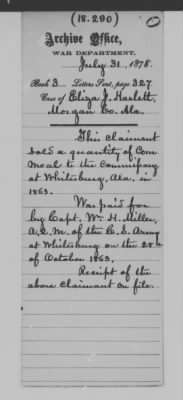 (18.290)
Archive Office,
WAR DEPARTMENT,
July 31, 1878.
Book 3 Letters Sent, page 327
Case of Eliza J. Haslett,
Morgan Co. Ala.
This claimant
sold a quantity of Corn
Meal to the Commissary
at Whitesburg, Ala. in
1863.
Was paid for
by Capt. Wm. H. Miller,
A.Q.M. of the C.S. Army
at Whitesburg on the 28th
of October 1863.
Receipt of the
above claimant on file.